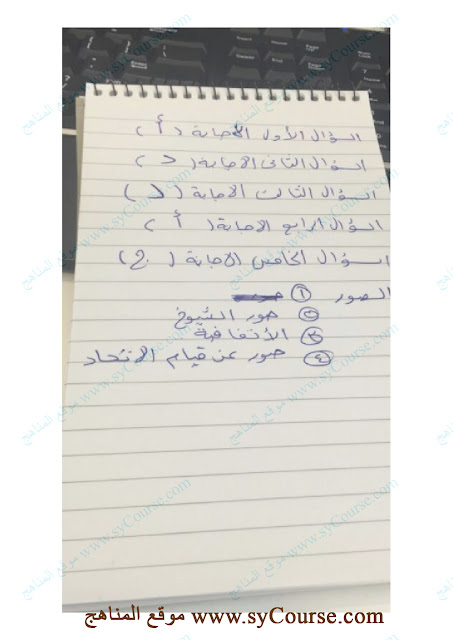 السؤال الأول الاجابة ( أ )
السؤال الثاني الاجابة ( د )
السؤال الثالث الاجابة ( د )
السؤال الرابع الاجابة ( أ )
السؤال الخامس الاجابة ( ج )
الصور ①
② صور الشيوخ
③ الاتفاقية
④ صور عن قيام الاتحاد
موقع المناهج www.syCourse.com